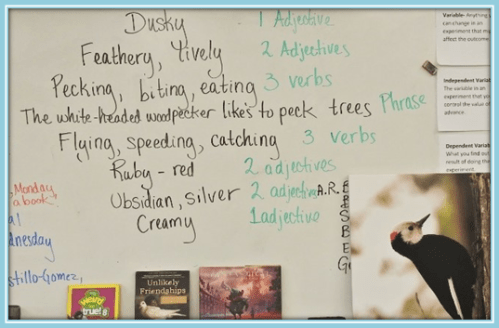 Dusky 1 Adjective
Feathery, lively 2 Adjectives
Pecking, biting, eating 3 verbs
The white-headed woodpecker likes to peck trees Phrase
Flying, speeding, catching 3 verbs
Ruby-red 2 adjectives
Obsidian, silver 2 adjectives
Creamy 1 adjective
Monday
a book
nesday
stillo-Gomez,
A.R.
Variable- Anything
can change in an
experiment that
affect the outcome.
Independent Variab
The variable in an
experiment that you
control the value of
advance.
Dependent Variab
What you find out
result of doing the
experiment.
weird
but
true! 8
Unlikely
Friendships